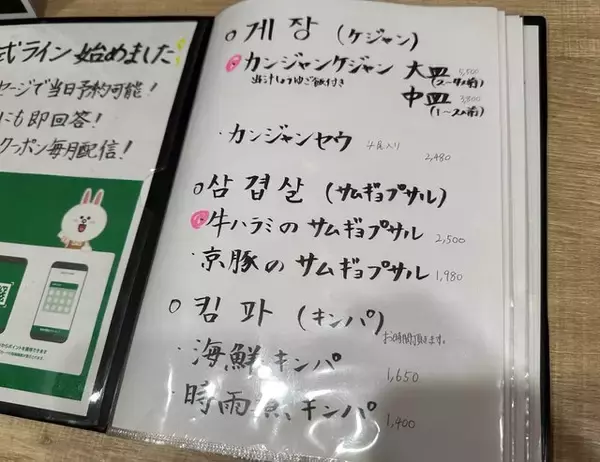 式ライン 始めました
セージで当日予約可能!
にも即回答!
クーポン毎月配信!
게장 (ケジャン)
カンジャンケジャン 大皿 5,800
出汁しょうゆご飯付き (2〜4人前)
中皿 3,800
(1〜2人前)
・カンジャンセウ 4尾入り 2,480
삼겹살 (サムギョプサル)
牛ハラミの サムギョプサル 2,500
・京豚の サムギョプサル 1,980
킴파 (キンパ)
お時間頂きます。
・海鮮キンパ 1,650
・時雨煮キンパ 1,400